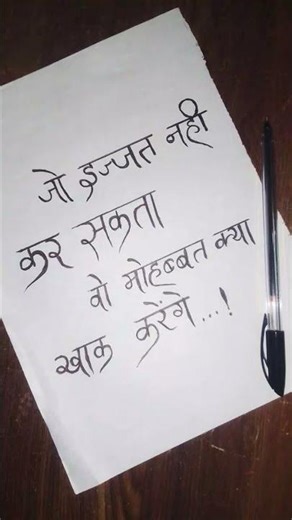 जो इज्जत नही
कर सकता
वो मोहब्बत क्या
खाक करेंगे...!